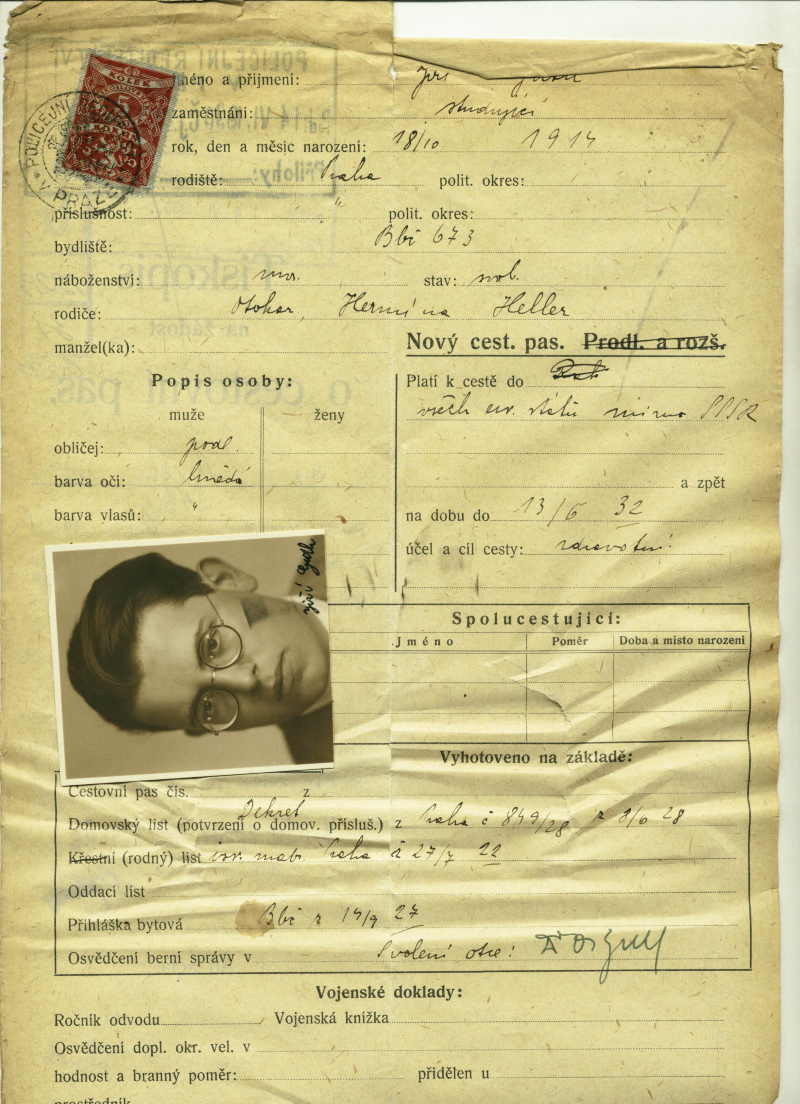 KOLEK
5
POLICEJNÍ
V PRAZE
Jméno a příjmení: Jiří
zaměstnání: studující
rok, den a měsíc narození: 18/10 1914
rodiště: Praha polit. okres:
příslušnost: " polit. okres:
bydliště: Bbč 673
náboženství: stav: svob.
rodiče: Otokar, Hermína Heller
manžel(ka):
Nový cest. pas. Prodl. a rozš.
Popis osoby:
muže ženy
obličej: podl.
barva očí: hnědá
barva vlasů: "
Platí k cestě do
všech evr. států mimo SSSR
a zpět
na dobu do 13/6 32
účel a cíl cesty: zdravotní
Jiří Guth
Spolucestující:
Jméno Poměr Doba a místo narození
Vyhotoveno na základě:
Cestovní pas čís. z
Dekret
Domovský list (potvrzení o domov. přísluš.) z Praha č 849/28 z 28
Křestní (rodný) list isr. matr. Praha č 27/7 22
Oddací list
Přihláška bytová Bbč z 14/9 27
Osvědčení berní správy v Svolení otce:
Vojenské doklady:
Ročník odvodu Vojenská knížka
Osvědčení dopl. okr. vel. v
hodnost a branný poměr: přidělen u